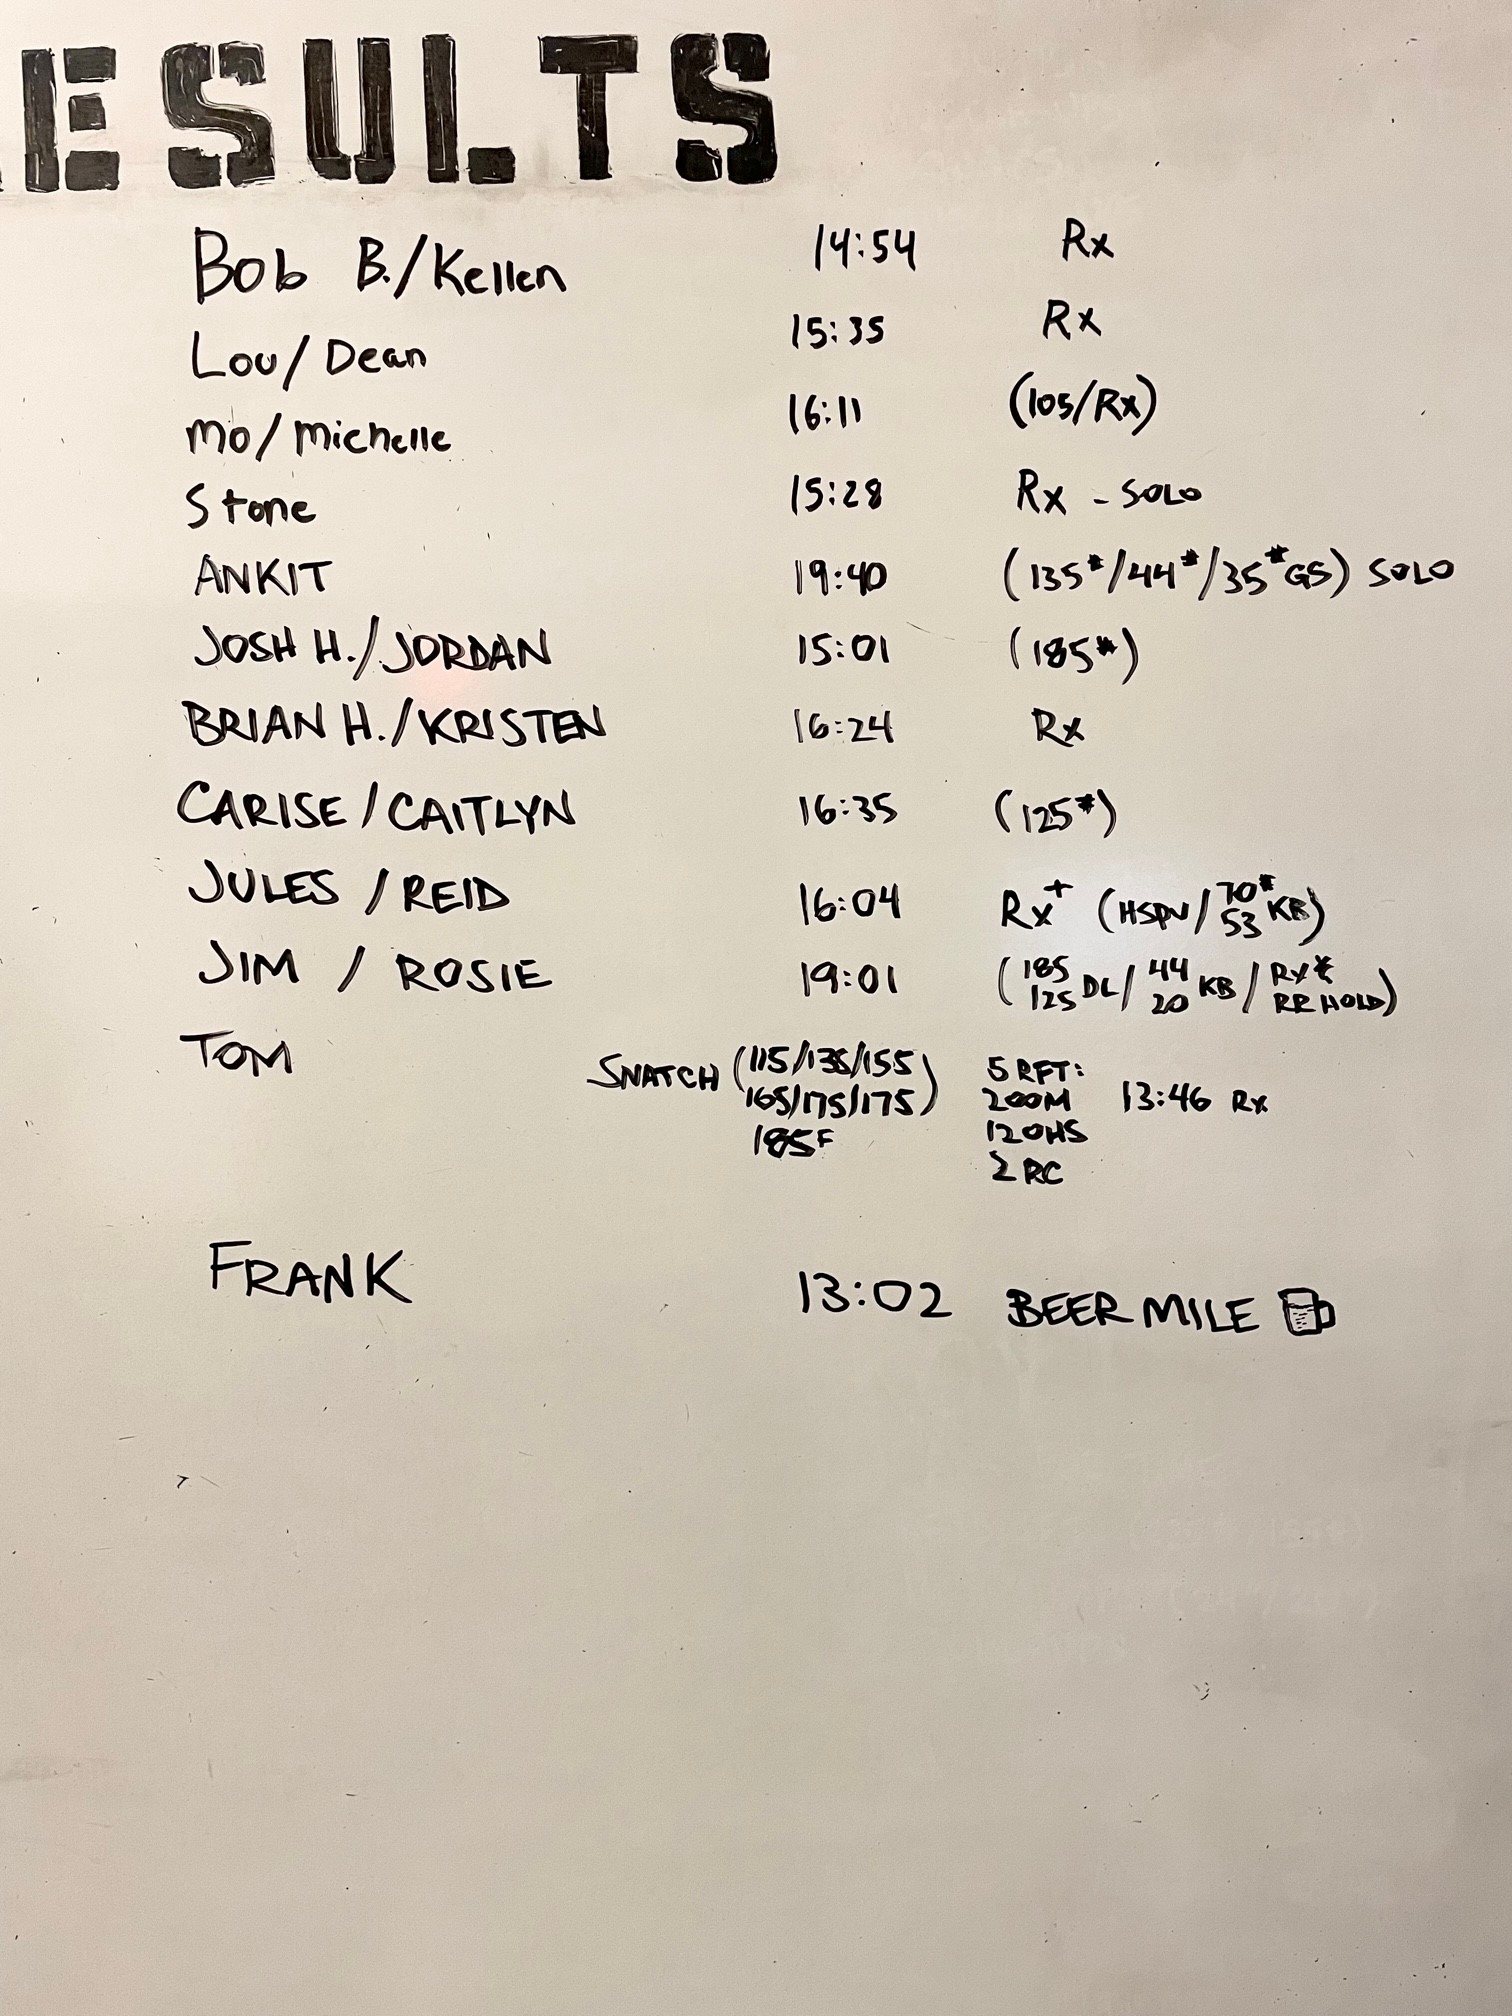 RESULTS
Bob B./Kellen 14:54 Rx
Lou/Dean 15:35 Rx
Mo/Michelle 16:11 (105/Rx)
Stone 15:28 Rx - SOLO
ANKIT 19:40 (135#/44#/35# GS) SOLO
JOSH H./JORDAN 15:01 (185#)
BRIAN H./KRISTEN 16:24 Rx
CARISE/CAITLYN 16:35 (125#)
JULES/REID 16:04 Rx+ (HSPU/70#
53 KB)
JIM / ROSIE 19:01 (185
125 DL/44
20 KB/RX &
RR HOLD)
TOM SNATCH (115/135/155
165/175/175)
185F
5 RFT:
200M 13:46 Rx
120HS
2 RC
FRANK 13:02 BEER MILE